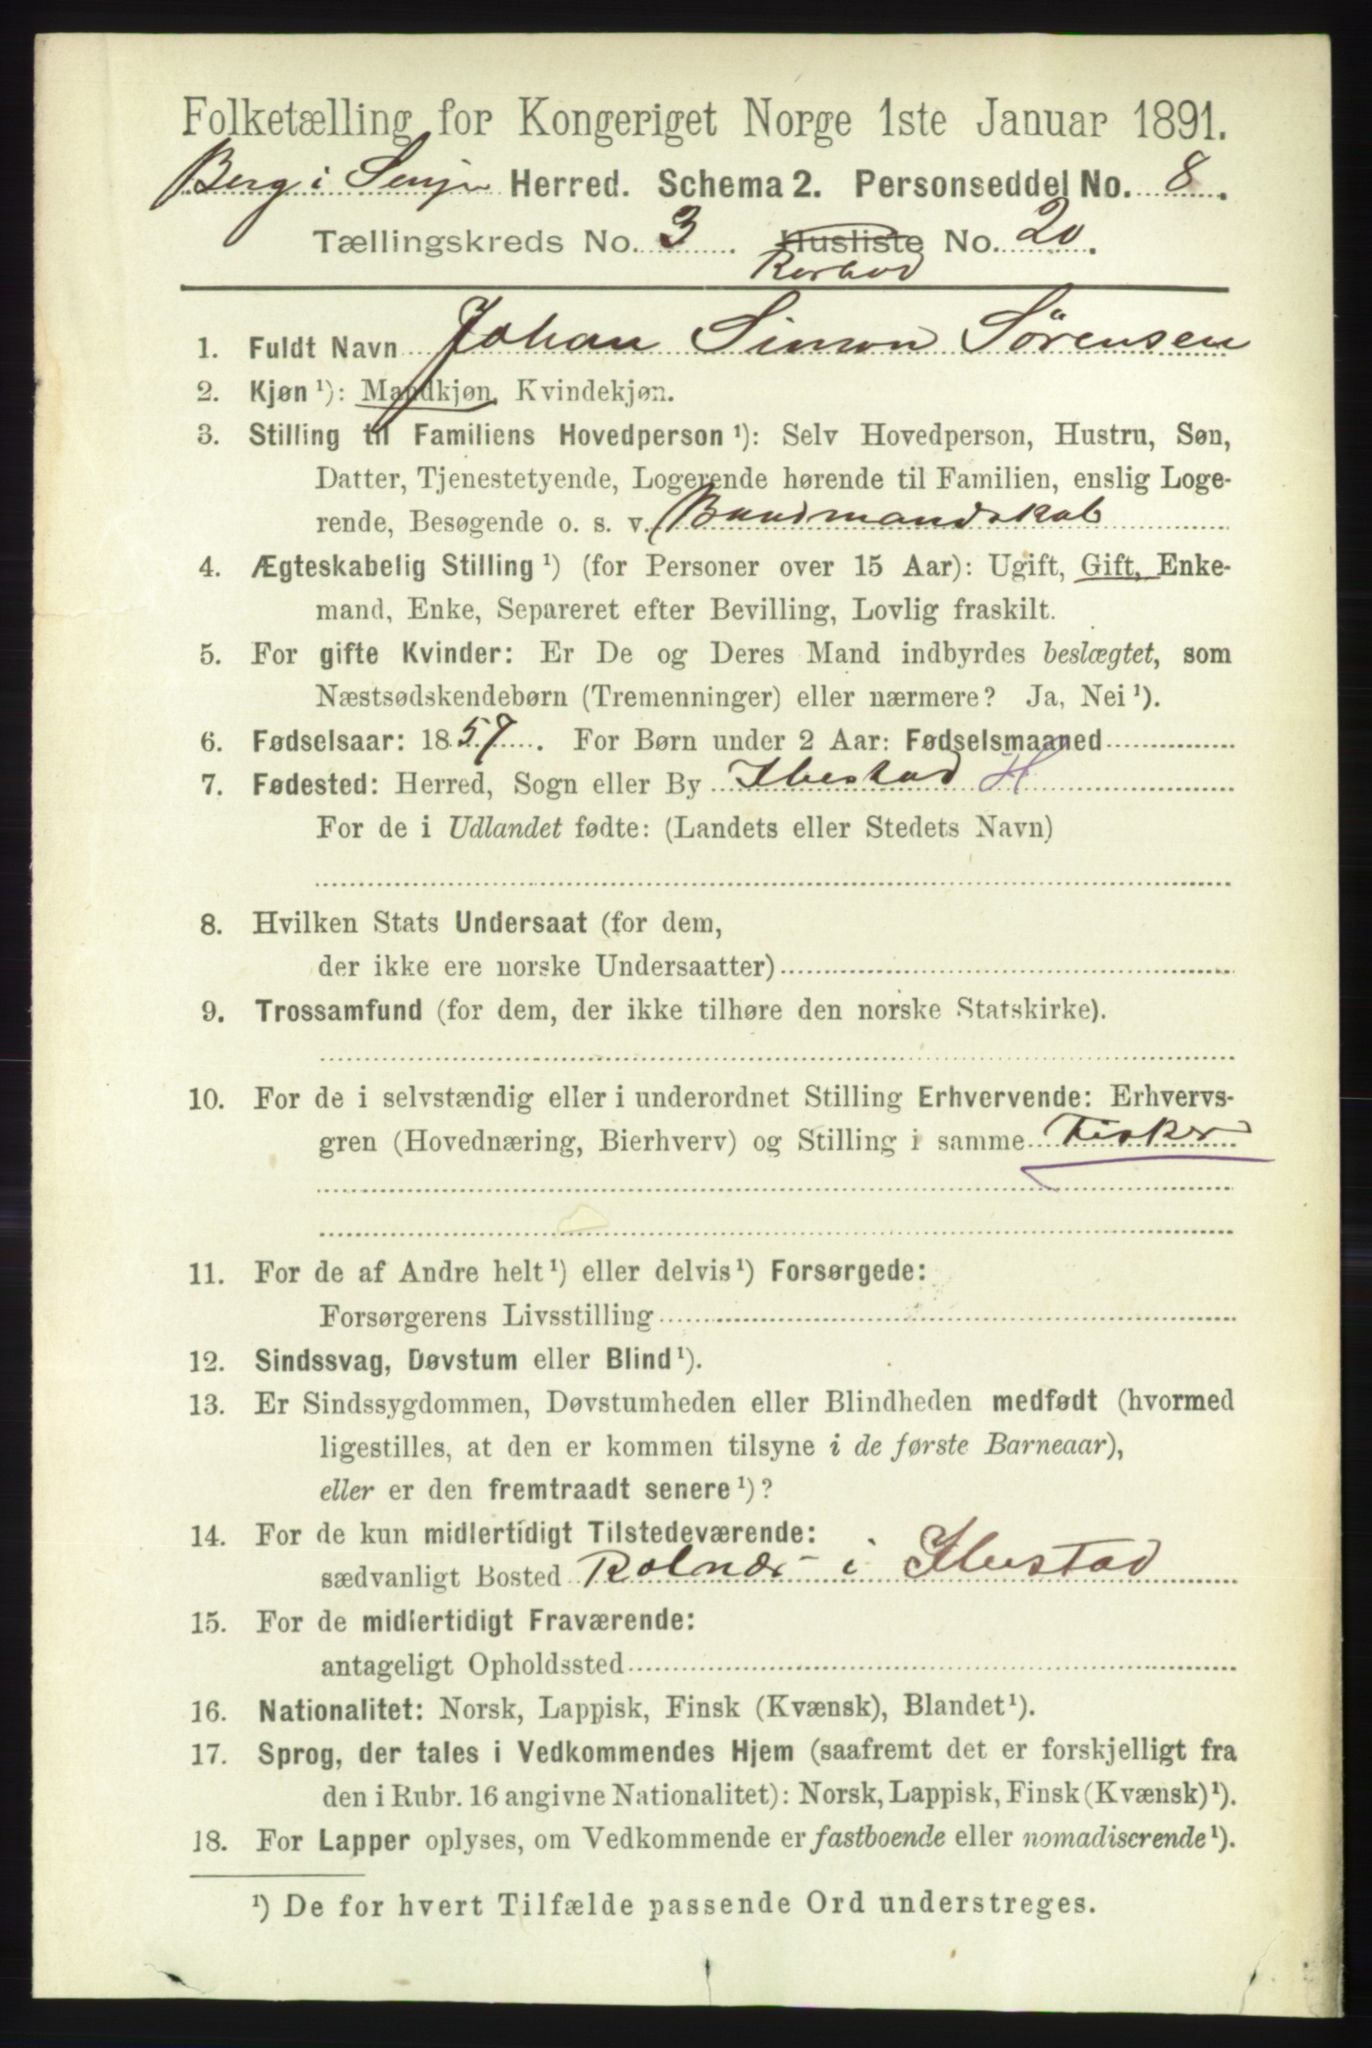 Folketælling for Kongeriget Norge 1ste Januar 1891.
Berg i Senjen Herred. Schema 2. Personseddel No. 8.
Tællingskreds No. 3. Husliste No. 20.
Rorbod
1. Fuldt Navn Johan Simon Sörensen
2. Kjøn ¹): Mandkjøn, Kvindekjøn.
3. Stilling til Familiens Hovedperson ¹): Selv Hovedperson, Hustru, Søn,
Datter, Tjenestetyende, Logerende hørende til Familien, enslig Loge-
rende, Besøgende o. s. v. Baadmandskab
4. Ægteskabelig Stilling ¹) (for Personer over 15 Aar): Ugift, Gift, Enke-
mand, Enke, Separeret efter Bevilling, Lovlig fraskilt.
5. For gifte Kvinder: Er De og Deres Mand indbyrdes beslægtet, som
Næstsødskendebørn (Tremenninger) eller nærmere? Ja, Nei ¹).
6. Fødselsaar: 1857. For Børn under 2 Aar: Fødselsmaaned
7. Fødested: Herred, Sogn eller By Ibestad H
For de i Udlandet fødte: (Landets eller Stedets Navn)
8. Hvilken Stats Undersaat (for dem,
der ikke ere norske Undersaatter)
9. Trossamfund (for dem, der ikke tilhøre den norske Statskirke).
10. For de i selvstændig eller i underordnet Stilling Erhvervende: Erhvervs-
gren (Hovednæring, Bierhverv) og Stilling i samme Fisker
11. For de af Andre helt ¹) eller delvis ¹) Forsørgede:
Forsørgerens Livsstilling
12. Sindssvag, Døvstum eller Blind ¹).
13. Er Sindssygdommen, Døvstumheden eller Blindheden medfødt (hvormed
ligestilles, at den er kommen tilsyne i de første Barneaar),
eller er den fremtraadt senere ¹)?
14. For de kun midlertidigt Tilstedeværende:
sædvanligt Bosted Rolnæs i Ibestad
15. For de midlertidigt Fraværende:
antageligt Opholdssted
16. Nationalitet: Norsk, Lappisk, Finsk (Kvænsk), Blandet ¹).
17. Sprog, der tales i Vedkommendes Hjem (saafremt det er forskjelligt fra
den i Rubr. 16 angivne Nationalitet): Norsk, Lappisk, Finsk (Kvænsk) ¹).
18. For Lapper oplyses, om Vedkommende er fastboende eller nomadiserende ¹).
¹) De for hvert Tilfælde passende Ord understreges.